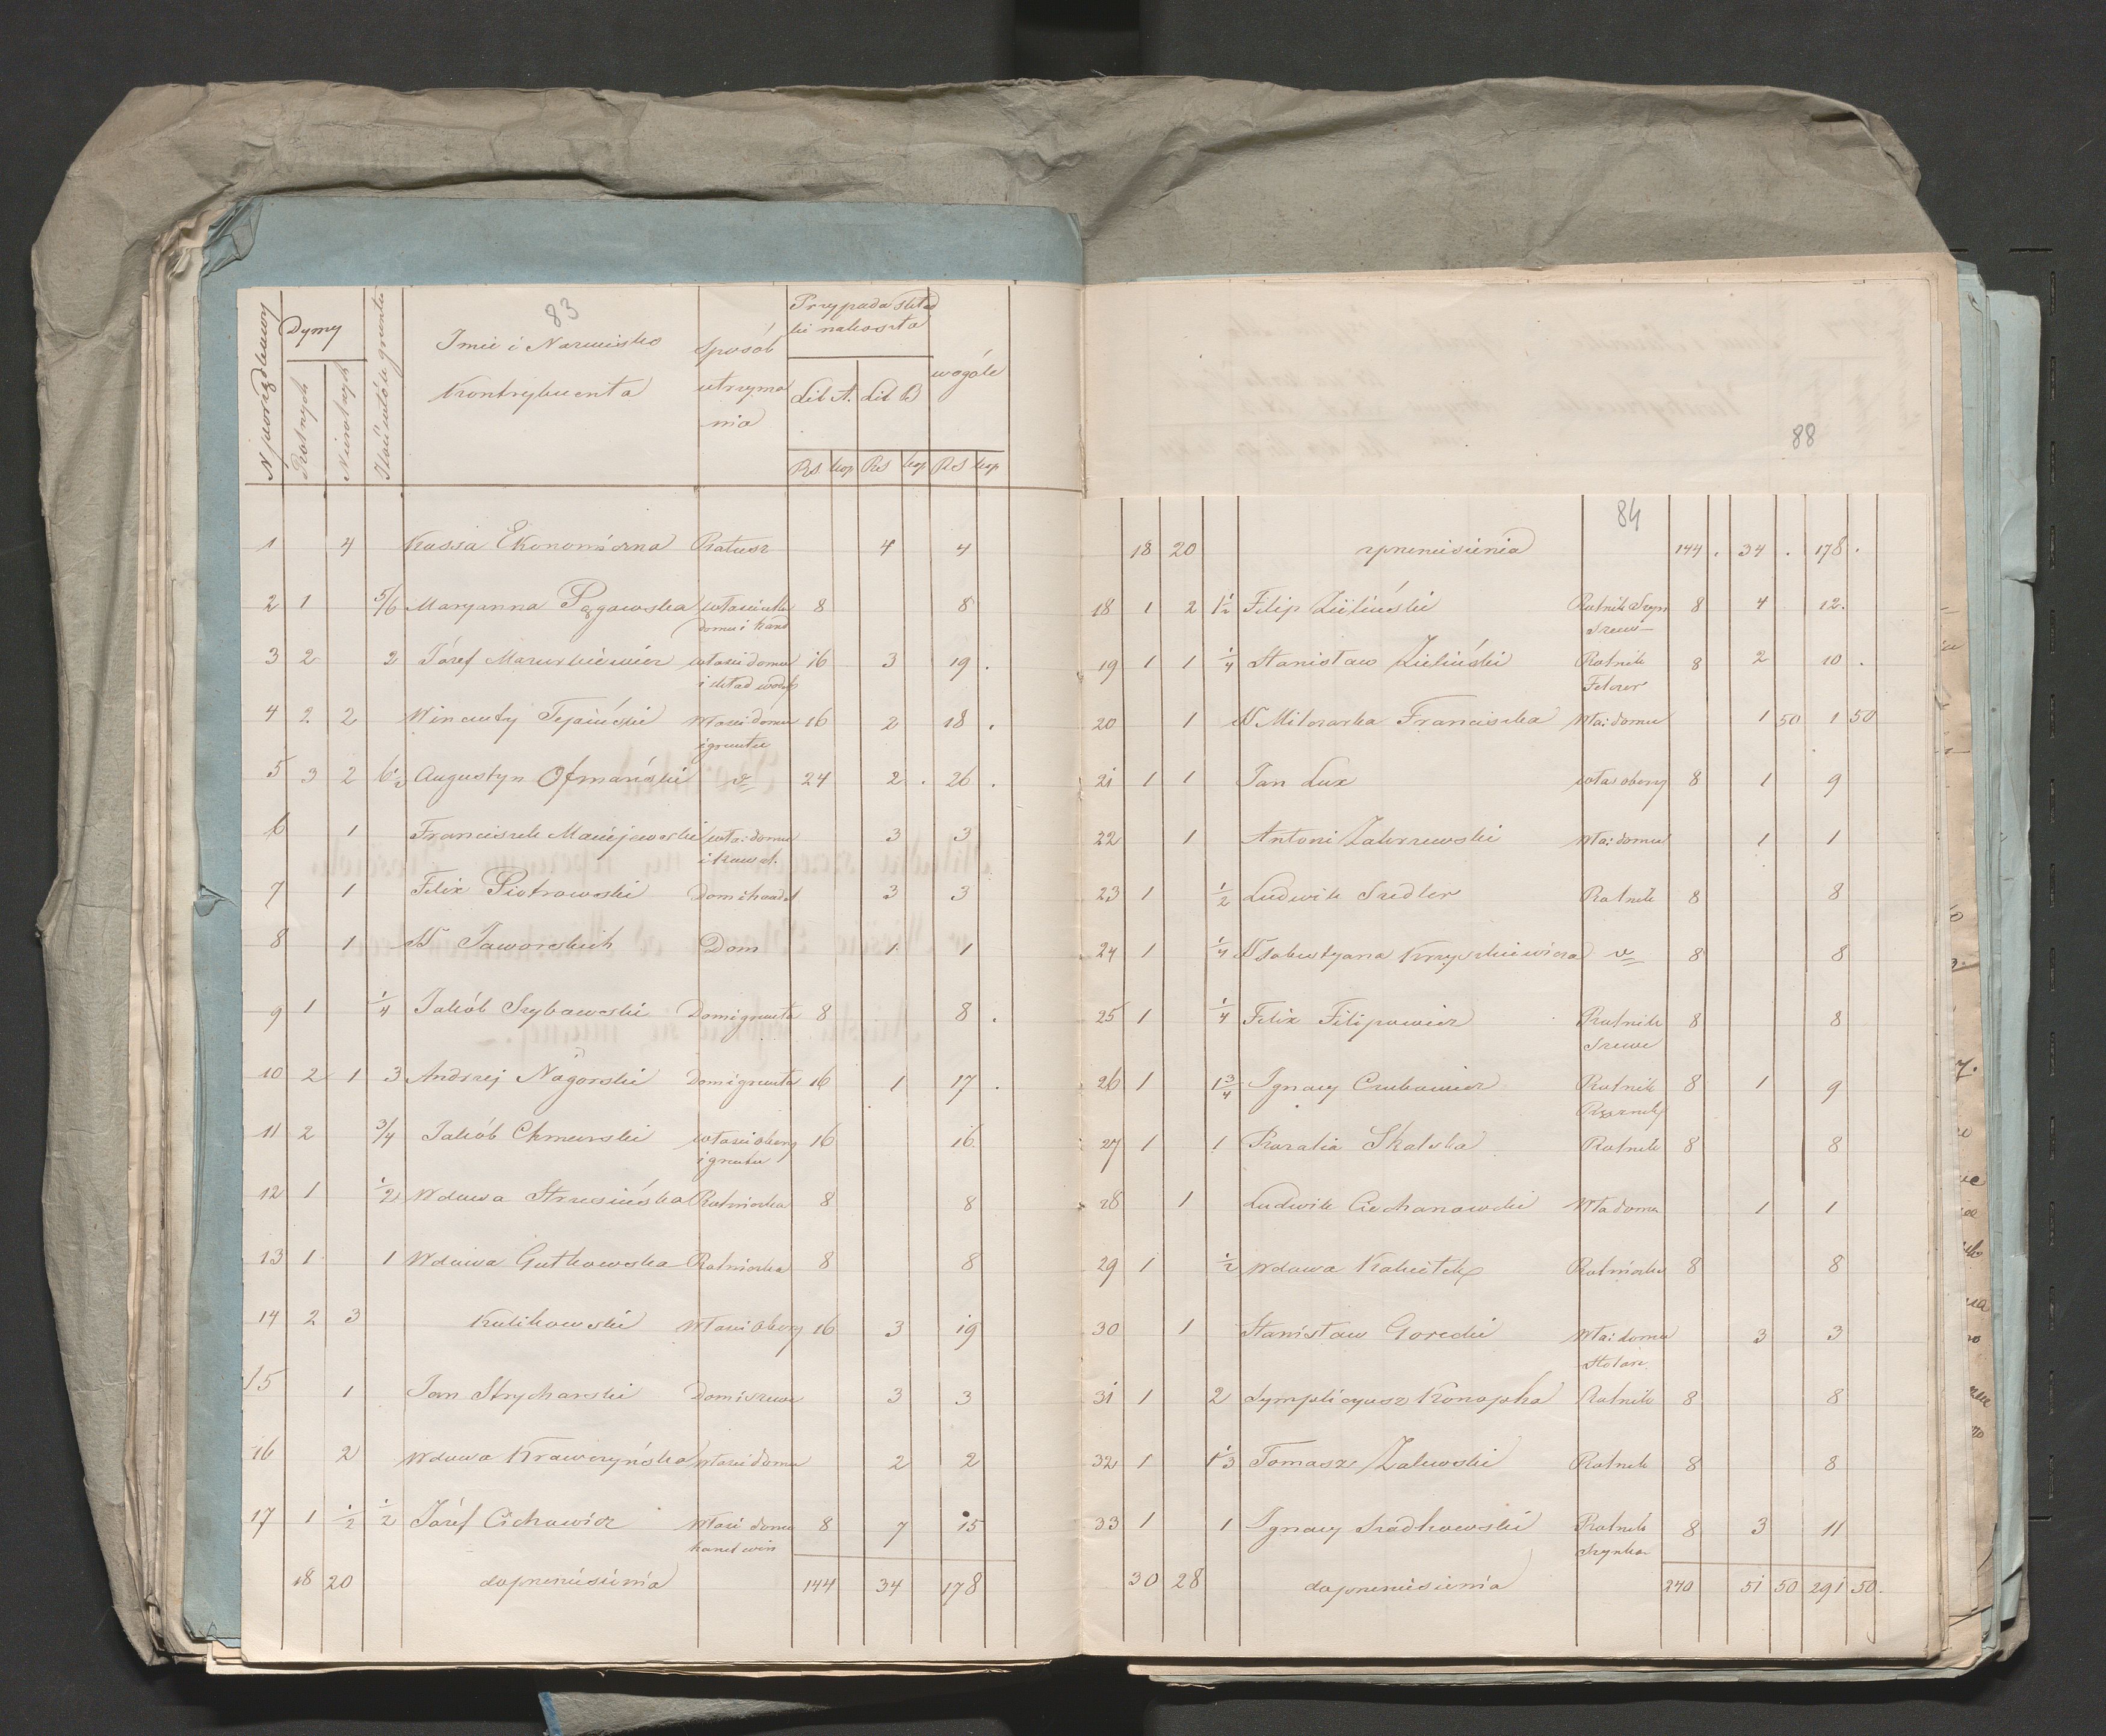 83
N porządkowy
Dymy
Rolnych
Nierolnych
Ilość włók gruntu
Imie i Nazwisko
Kontrybuenta
Sposób
utrzyma
nia
Przypada skład
ki na koszta
Lit A. Lit B
wogóle
Rs. kop Rs kop Rs kop
1 4 Kassa Ekonomiczna Ratusz 4 4
2 1 5/6 Maryanna Pągowska właścicielka 8 8
domu i hand
3 2 2 Józef Mazurkiewicz właści domu 16 3 19.
i skład wódek
4 2 2 Wincenty Właści domu 16 2 18.
i gruntu
5 3 2 6 1/2 Augustyn Ofmański v 24 2. 26.
6 1 Franciszek Maciejewski wła: domu 3 3
7 1 Felix Piotrowski Dom i handel 3 3
8 1 N Jaworskich Dom 1 1
9 1 1/4 Jakób Szybowski Dom i grunta 8 8.
10 2 1 3 Andrzej Nagorski Dom i grunta 16 1 17.
11 2 3/4 Jakób Chmurski właści oberży 16 16.
i gruntu
12 1 1/2 Wdowa Strzesińska Rolniczka 8 8
13 1 1 Wdowa Gutkowska Rolniczka 8 8
14 2 3 Kulikowski Właści oberży 16 3 19
15 1 Jan Strycharski Dom i szewc 3 3
16 2 Wdowa Krawczyńska Właści domu 2 2
17 1 1/2 1/2 Józef Cichowicz Właści domu 8 7 15
handel win
18 20 do przeniesienia 144 34 178
88
84
18 20 z przeniesienia 144. 34. 178.
18 1 2 1 1/2 Filip Zieliński Rolnik Szyn 8 4 12.
Szewc
19 1 1 1/4 Stanisław Zieliński Rolnik 8 2 10.
Felczer
20 1 N Milczarka Franciszka Wła: domu 1 50 1 50
21 1 1 Jan Lux właś oberży 8 1 9
22 1 Antoni Zakrzewski Wła: domu 1 1
23 1 1/2 Ludwik Szedler Rolnik 8 8
24 1 1/4 N Sebestyana Krzyszkiewicza v 8 8
25 1 1/4 Felix Filipowicz Rolnik 8 8
Szewc
26 1 1 3/4 Ignacy Czubowicz Rolnik 8 1 9
Rzeźnik
27 1 1 Rozalia Skalska Rolnik 8 8
28 1 Ludwik Ciechanowski Wła domu 1 1
29 1 1/2 Wdowa Rolniczka 8 8
30 1 Stanisław Gorecki Wła: domu 3 3
Stolarz
31 1 2 Symplicyusz Konopka Rolnik 8 8
32 1 1 1/3 Tomasz Zalewski Rolnik 8 8
33 1 1 Ignacy Sradkowski Rolnik 8 3 11
Szynkarz
30 28 do przeniesienia 240 51 50 291 50.